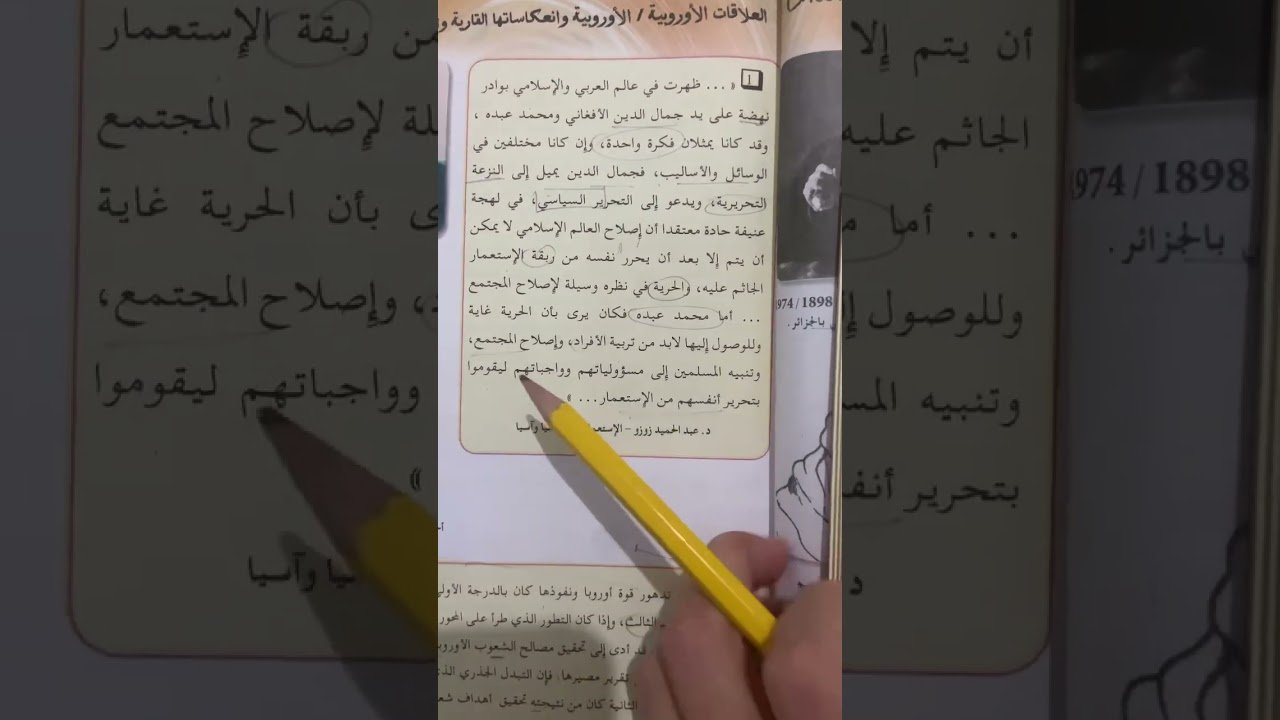 العلاقات الأوروبية / الأوروبية وانعكاساتها القارية
1 « ... ظهرت في عالم العربي والإسلامي بوادر
نهضة على يد جمال الدين الأفغاني ومحمد عبده ،
وقد كانا يمثلان فكرة واحدة، وإن كانا مختلفين في
الوسائل والأساليب، فجمال الدين يميل إلى النزعة
التحريرية، ويدعو إلى التحرير السياسي، في لهجة
عنيفة حادة معتقدا أن إصلاح العالم الإسلامي لا يمكن
أن يتم إلا بعد أن يحرر نفسه من ربقة الإستعمار
الجاثم عليه، والحرية في نظره وسيلة لإصلاح المجتمع
... أما محمد عبده فكان يرى بأن الحرية غاية
وللوصول إليها لابد من تربية الأفراد، وإصلاح المجتمع،
وتنبيه المسلمين إلى مسؤولياتهم وواجباتهم ليقوموا
بتحرير أنفسهم من الإستعمار... »
د. عبد الحميد زوزو - وآسيا
1974 / 1898
بالجزائر.
تدهور قوة أوروبا ونفوذها كان بالدرجة الأولى
الثالث، وإذا كان التطور الذي طرأ على المحور
قد أدى إلى تحقيق مصالح الشعوب
تقرير مصيرها، فإن التبدل الجذري
الثانية كان من نتيجته تحقيق أهداف